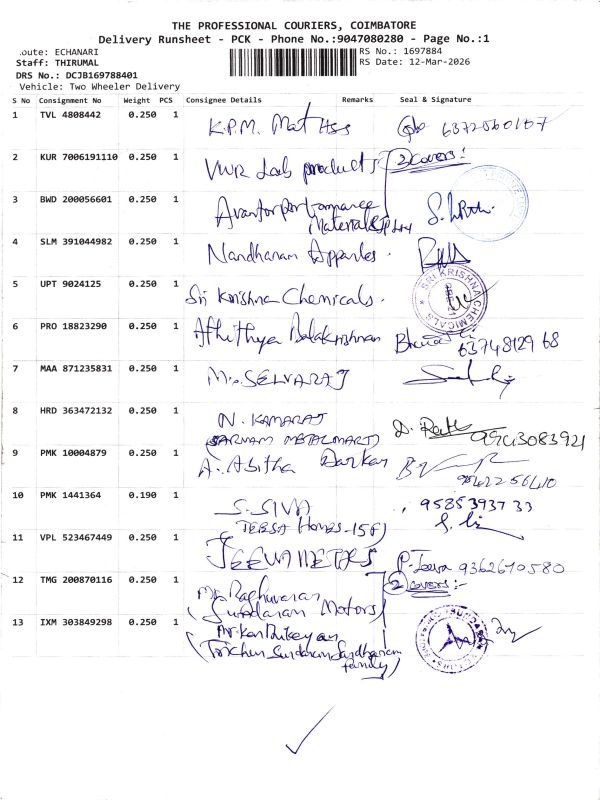 THE PROFESSIONAL COURIERS, COIMBATORE
Delivery Runsheet - PCK - Phone No.:9047080280 - Page No.:1
oute: ECHANARI
RS No.: 1697884
Staff: THIRUMAL
RS Date: 12-Mar-2026
DRS No.: DCJB169788401
Vehicle: Two Wheeler Delivery
S No Consignment No Weight PCS Consignee Details Remarks Seal & Signature
1 TVL 4808442 0.250 1 K.P.M. Mat Hss
2 KUR 7006191110 0.250 1 VWR Lab products 2 covers:
3 BWD 200056601 0.250 1 Avantor performance
Materials
4 SLM 391044982 0.250 1 Nandhanam Apparles.
5 UPT 9024125 0.250 1 Sri Krishna Chemicals. SRI KRISHNA CHEMICALS
6 PRO 18823290 0.250 1 Athithya Balakrishnan 63748129 68
7 MAA 871235831 0.250 1 Mr. SELVARAJ
8 HRD 363472132 0.250 1 N. KAMARAJ
(SARVAM METALMART) 9943083921
9 PMK 10004879 0.250 1 A. Abitha
10 PMK 1441364 0.190 1 S. SIVA 95853937 33
11 VPL 523467449 0.250 1 JEEVA METALS P. Jeeva 9362670580
12 TMG 200870116 0.250 1 Mr. Raghuvaran 2 covers:-
(Sundaram Motors)
13 IXM 303849298 0.250 1 Mr. Karthikeyan
family)